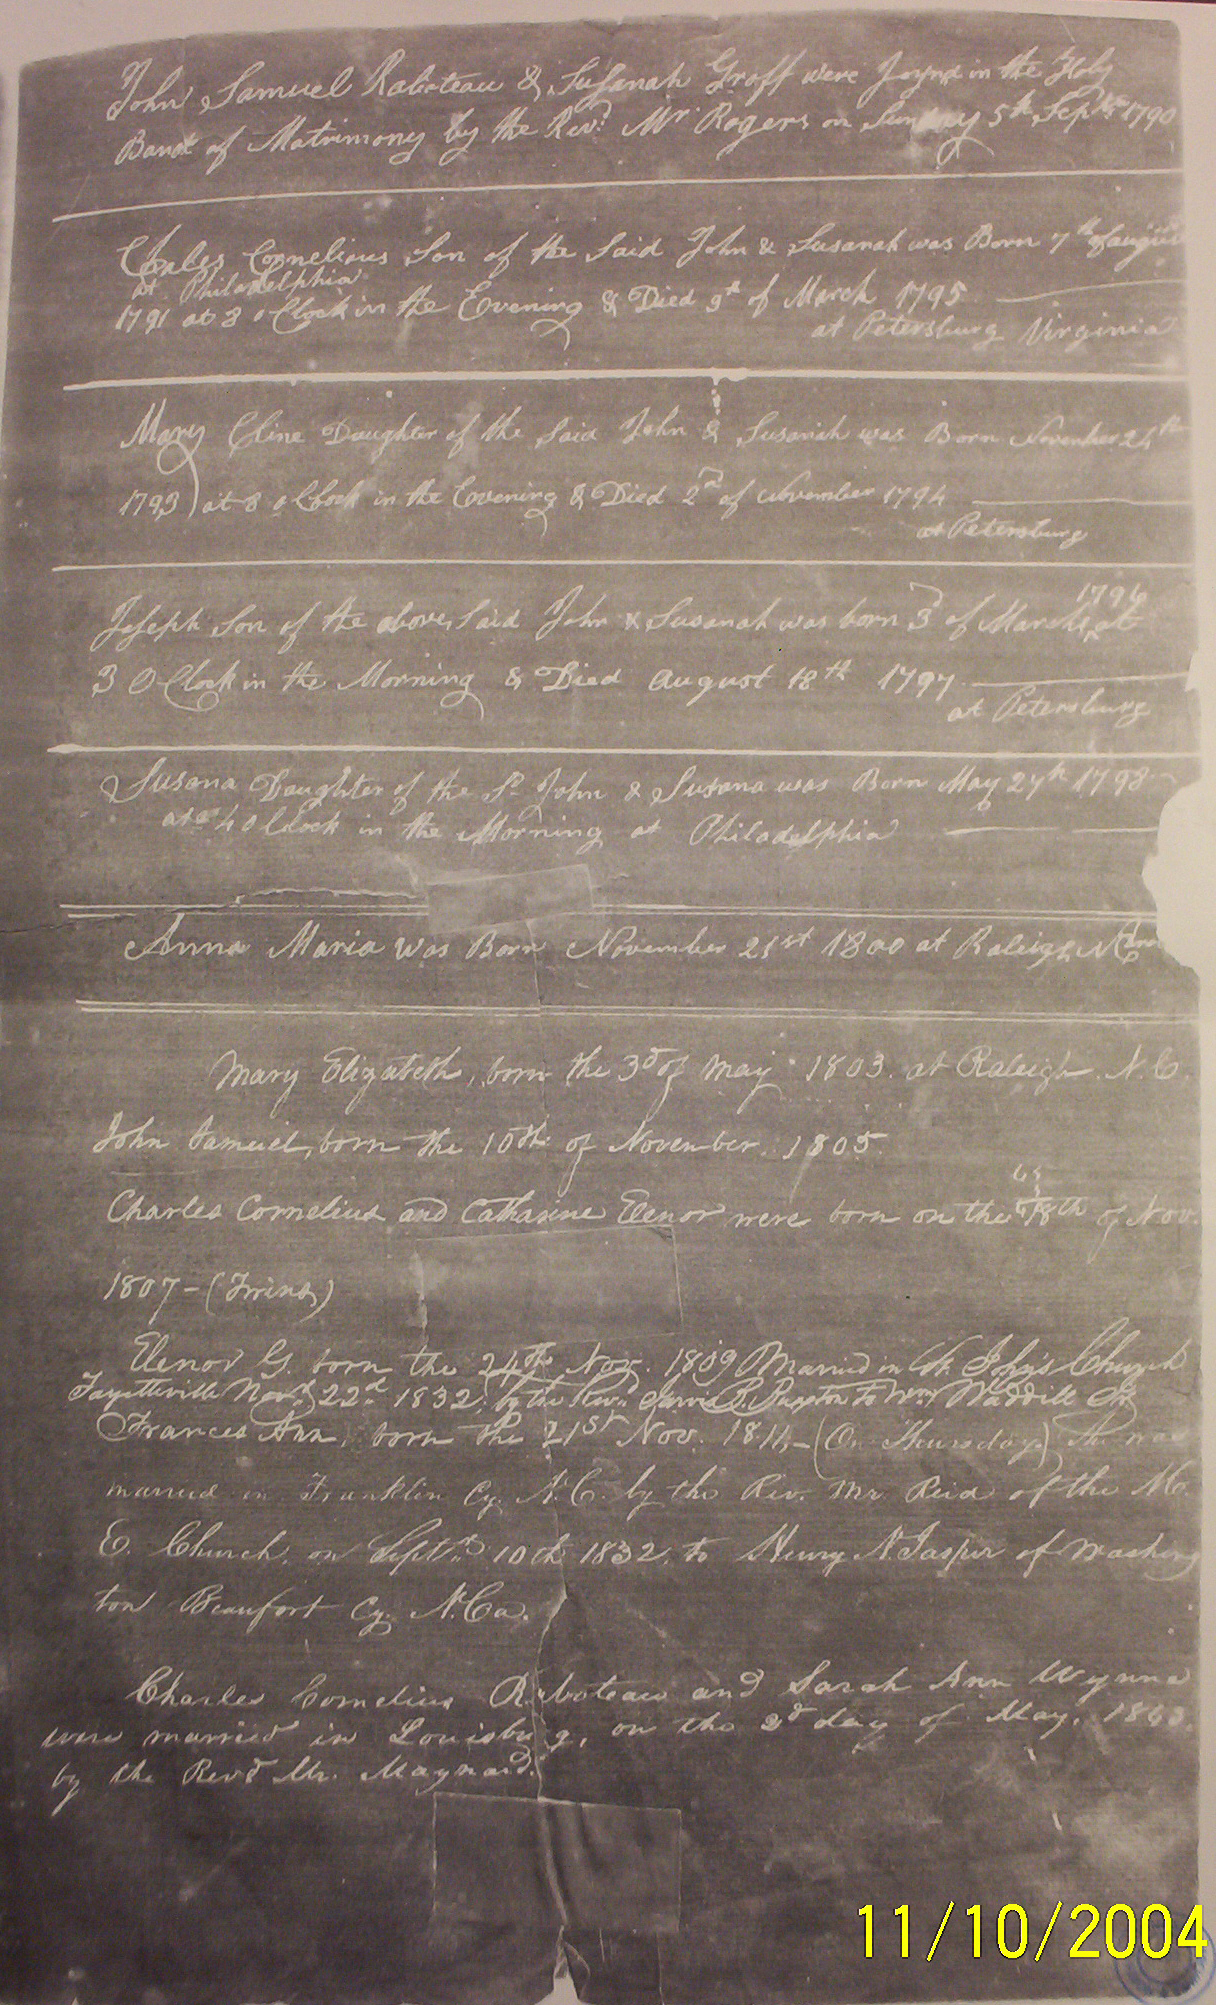 John Samuel Raboteau & Susanah Groff were Joynd in the Holy
Band of Matrimony by the Revd. Mr Rogers on Sunday 5th Septber 1790
Chales Cornelious Son of the Said John & Susanah was Born 7th of august
at Philadelphia
1791 at 8 o Clock in the Evening & Died 9th of March 1795
at Petersburg Virginia
Mary Cline Daughter of the Said John & Susanah was Born November 24th
1793 at 8 o Clock in the Evening & Died 2d of November 1794
at Petersburg
1796
Joseph Son of the above Said John & Susanah was born 3d of March at
3 O Clock in the Morning & Died august 18th 1797
at Petersburg
Susana Daughter of the Sd John & Susana was Born May 27th 1798
at 4 o Clock in the Morning at Philadelphia
Anna Maria was Born November 21st 1800 at Raleigh
Mary Elizabeth, born the 3d of May 1803. at Raleigh. N.C.
John Samuel, born the 10th of November. 1805.
Charles Cornelius and Catharine Elenor were born on the 18th of Nov.
1807 - (Twins)
Elenor G. born the 24th Nov. 1809 Married in St. John's Church
Fayetteville 22d 1832, by the Revd. Jarvis B. Buxton to Wm. Waddill Jr
Frances Ann, born the 21st Nov. 1811 - (On Thursday) She was
married in Franklin Cy. N.C. by the Rev. Mr Reid of the M.
E. Church, on Sept. 10th 1832. to Henry N. Jasper of Washing
ton Beaufort Cy. N. Ca.
Charles Cornelius Raboteau and Sarah Ann Wynne
were married in Louisburg, on the 2d day of May,
by the Revd Mr. Maynard.
11/10/2004